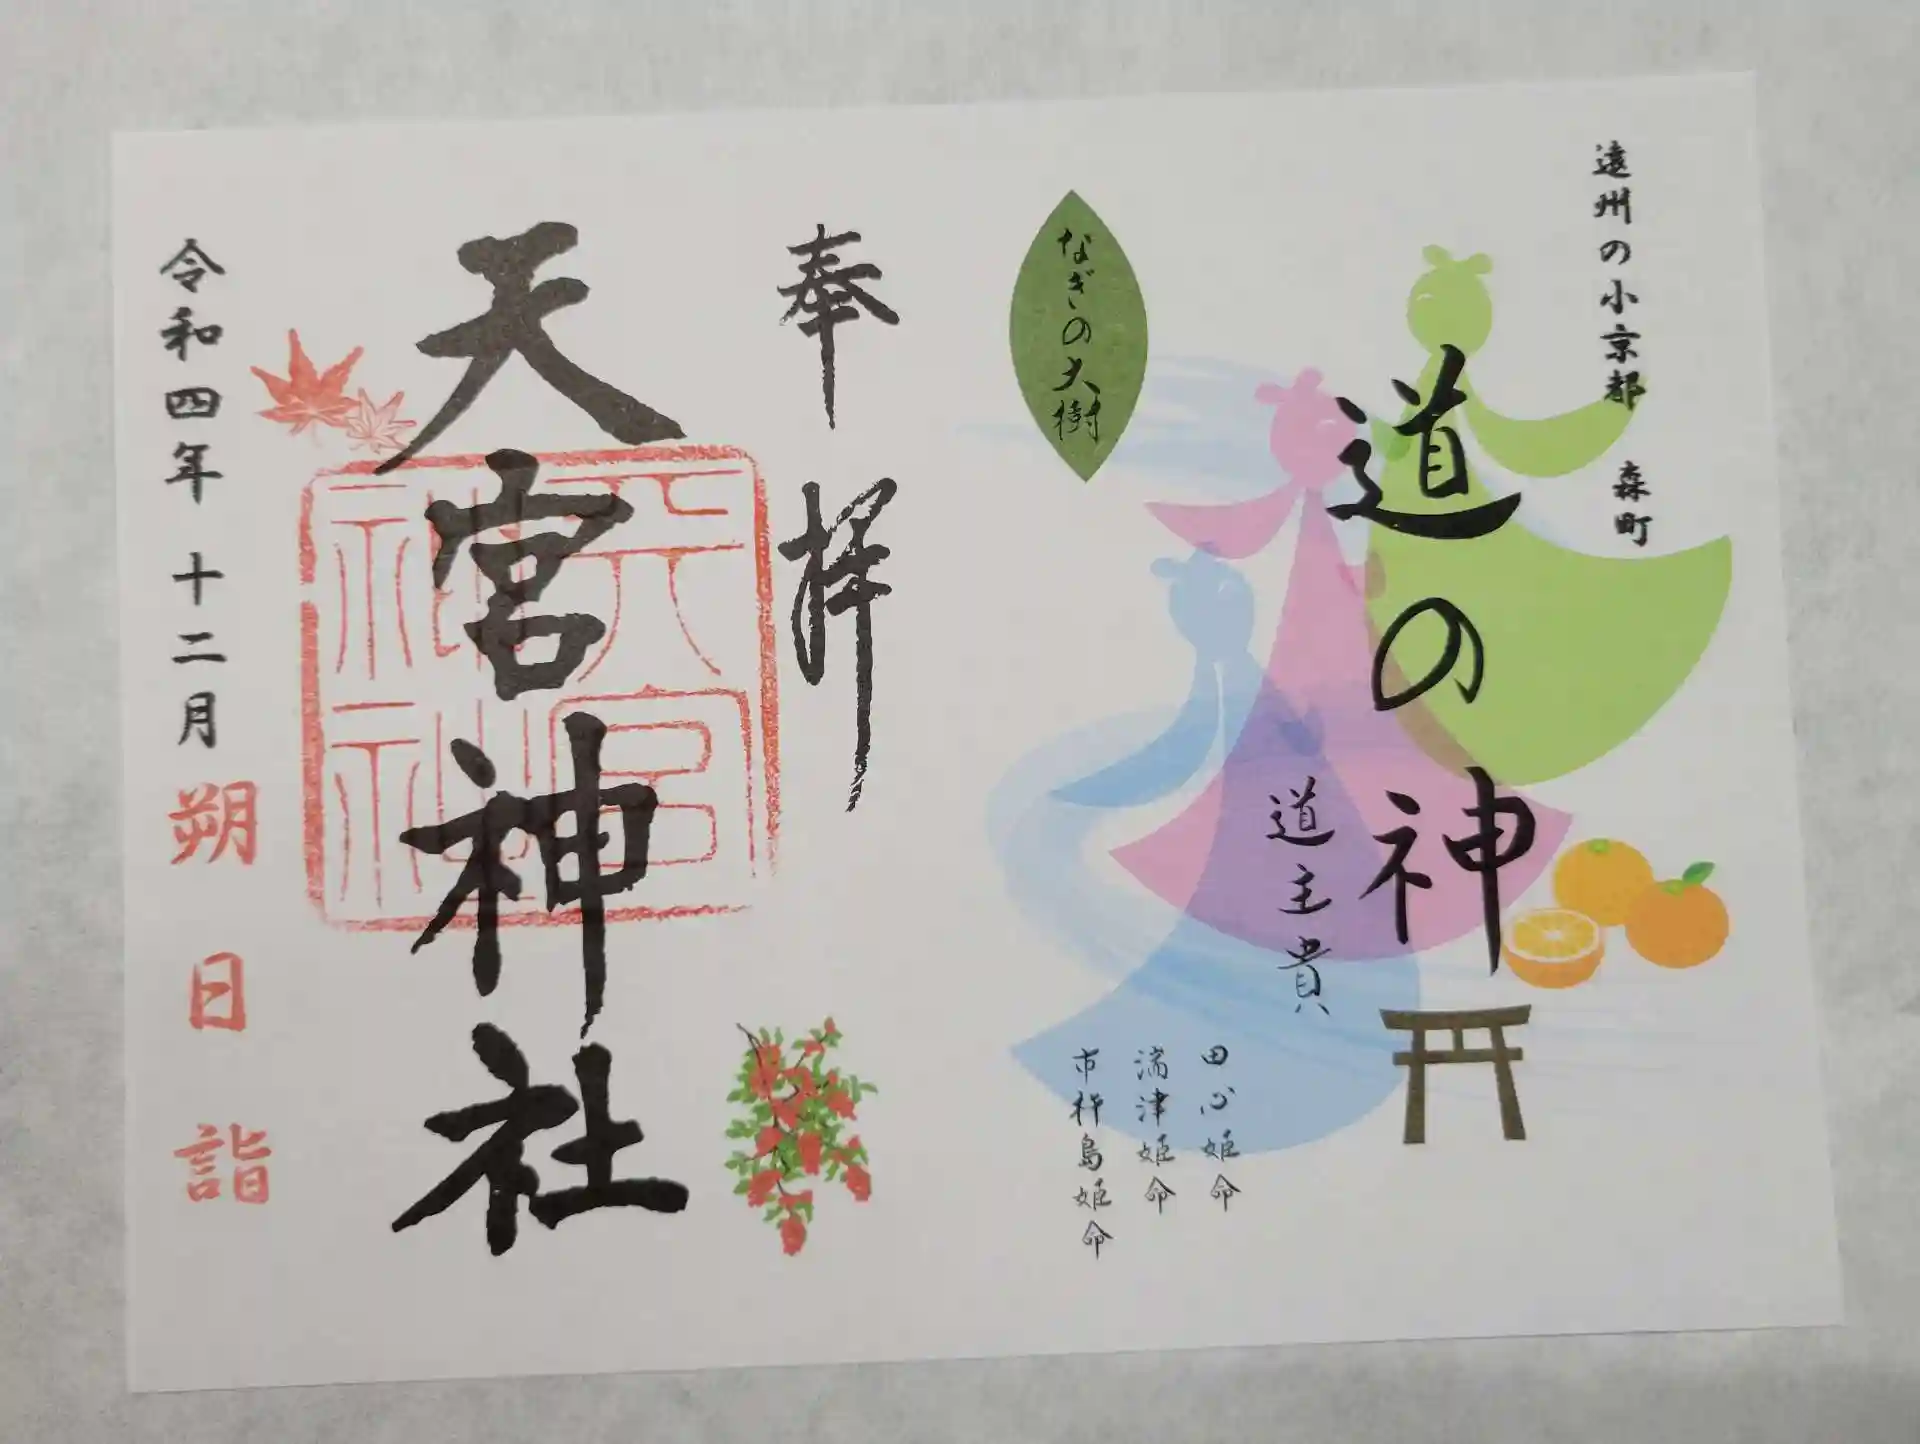 遠州の小京都 森町
道の神
道主貴
田心姫命
湍津姫命
市杵島姫命
なぎの大樹
奉拝
天宮神社
天宮神社
令和四年十二月
朔日詣